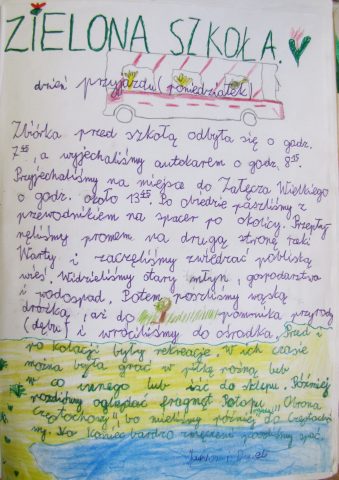 ZIELONA SZKOŁA.
dzień przyjazdu (poniedziałek)
Zbiórka przed szkołą odbyła się o godz.
7⁴⁵, a wyjechaliśmy autokarem o godz. 8¹⁵.
Przyjechaliśmy na miejsce do Załęcza Wielkiego
o godz. około 13⁴⁵. Po obiedzie poszliśmy z
przewodnikiem na spacer po okolicy. Przepły-
nęliśmy promem na drugą stronę rzeki
Warty i zaczęliśmy zwiedzać pobliską
wieś. Widzieliśmy stary młyn, gospodarstwa
i wodospad. Potem poszliśmy wąską
dróżką, aż do pomnika przyrody
(dębu) i wróciliśmy do ośrodka. Przed i
po kolacji były rekreacje, w ich czasie
można było grać w piłkę nożną lub
w co innego lub iść do sklepu. Później
oglądać fragment Potopu „Obrona
Częstochowy", bo mieliśmy później jechać do Częstocho-
wy. Na koniec bardzo zmęczeni poszliśmy spać.